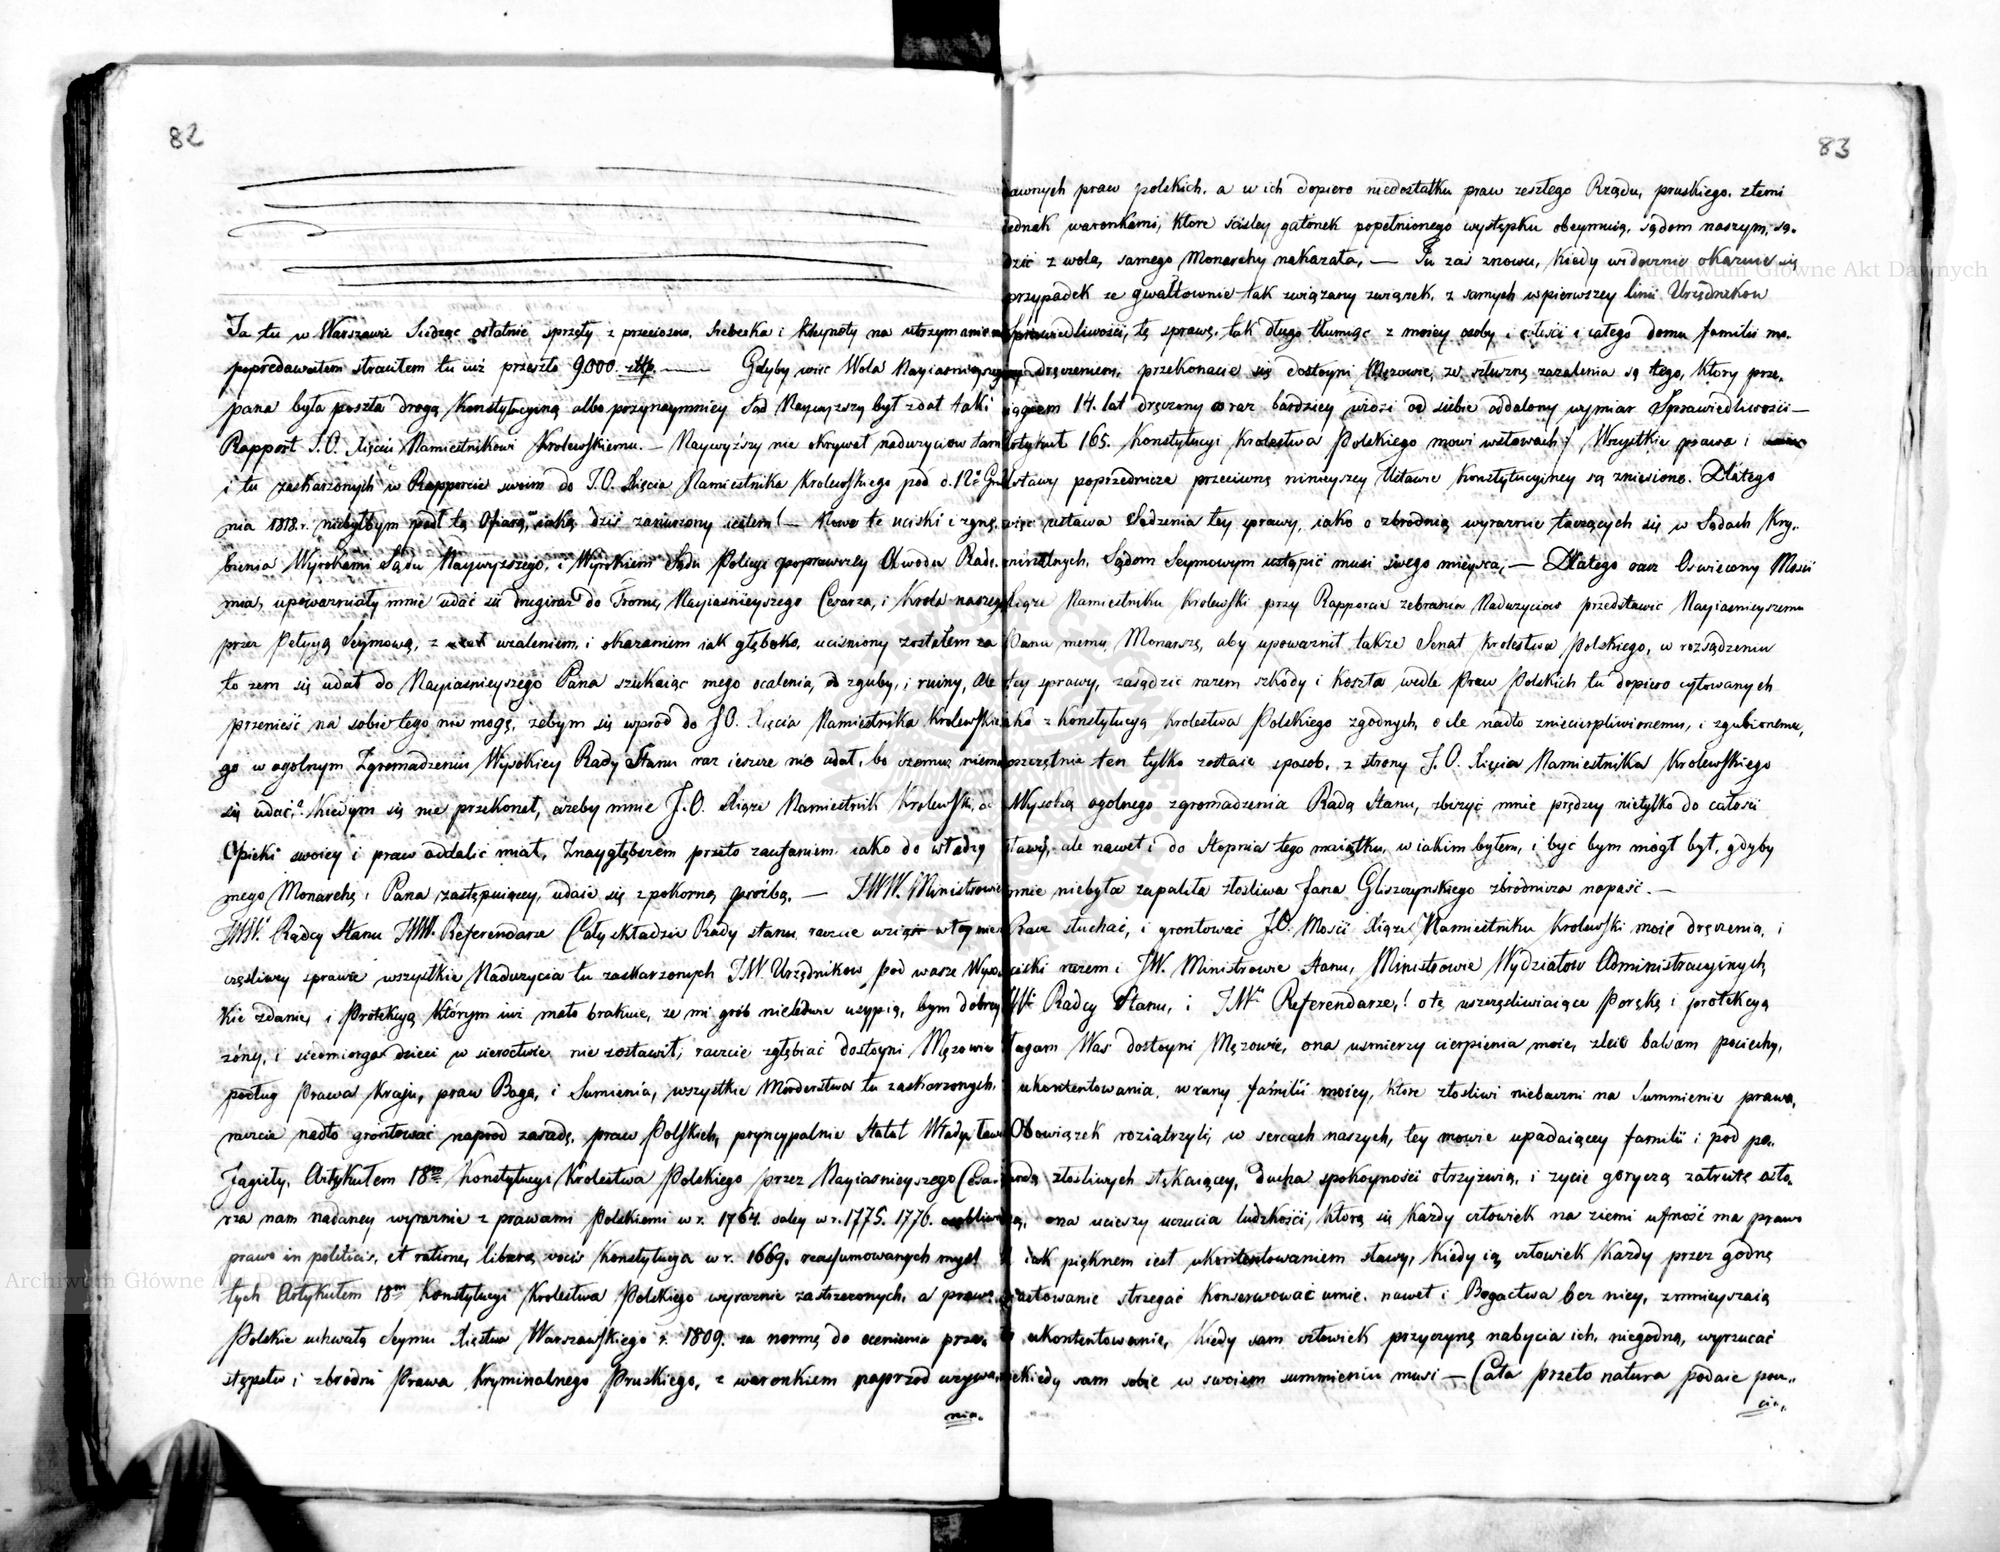 82
Ja tu w Warszawie Siedząc ostatnie sprzęty z przeciozow, srebeska i kleynoty na utrzymanie
poprzedawałem straciłem tu iuż przeszło 9000. złłp. — Gdyby więc Wola Nayiasnieyszego
pana była poszła drogą Konstytucyiną albo przynaymniey Sąd Naywyższy był zdał taki
Rapport J.O. Xięciu Namiestnikowi Krolewskiemu. — Naywyższy nie okrywał nadużyciow
i tu zaskarżonych w Rapporcie swoim do J.O. Xięcia Namiestnika Krolewskiego pod d. 12º
nia 1818. r. niebyłbym padł tą Ofiarą, iaką dziś zanurzony iestem! — Nowe te uciski i zgnę.
bienia Wyrokami Sądu Naywyższego, i Wyrokiem Sądu Policyi poprawczey Obwodu Rado.
mia, upoważniały mnie udać się drugiraz do Tronu, Nayiasnieyszego Cesarza, i Krola naszego
przez Petycyą Seymową, z użaleniem, i okazaniem iak głęboko, uciśniony zostałem za
to żem się udał do Nayiasnieyszego Pana szukaiąc mego ocalenia, od zguby, i ruiny, Ale
przenieść na sobie tego nie mogę, żebym się wprod do J.O. Xięcia Namiestnika Krolewskie
go w ogolnym Zgromadzeniu Wysokiey Rady Stanu raz ieszcze nie udał, bo czemuż niemam
się udać? Kiedym się nie przekonał, ażeby mnie J.O. Xiąże Namiestnik Krolewski, od
Opieki swoiey i praw oddalić miał, Znaygłębszem przeto zaufaniem iako do władzy
mego Monarchę i Pana zastępuiącey, udaie się z pokorną proźbą. — JWW. Ministrowie
JWW. Radcy Stanu JWW. Referendarze Cały składzie Rady stanu, raczcie
częśliwey sprawie wszystkie Nadużycia tu zaskarżonych JW. Urzędnikow pod wasze Wyso
kie zdanie, i Protekcyą którym iuż mało brakuie, że mi grób nieledwie usypią, bym dobrey
żóny, i siedmiorga dzieci w sieroctwie nie zostawił, raczcie zgłębiać dostoyni Mężowie
podług Prawa Kraju, praw Boga, i Sumienia, wszystkie Morderstwa tu zaskarżonych,
raczcie nadto grontować naprod zasadę, praw Polskich, pryncypalnie Statut Władysława
Jagiełły, Artykułem 18m Konstytucyi Krolestwa Polskiego przez Nayiasnieyszego Cesa
rza nam nadaney wyraźnie z prawami Polskiemi w r. 1764. daley w r. 1775. 1776.
prawo in politicis, et ratione, liberæ, vocis Konstytucya w r. 1669. reassumowanych mysl
tych Artykułem 18m Konstytucyi Krolestwa Polskiego wyraźnie zastrzeżonych, a prawo
Polskie uchwałą Seymu Xięstwa Warszawskiego r. 1809. za normę do ocenienia prze
stępstw i zbrodni Prawa Kryminalnego Pruskiego, z warunkiem naprzod używa
nia.
83
dawnych praw polskich, a w ich dopiero niedostatku praw zeszłego Rządu, pruskiego, z temi
jednak warunkami, które sciśley gatonek popełnionego występku obeymuią, sądom naszym, są.
dzić z wolą, samego Monarchy nakazała, — Tu zaś znowu, kiedy widocznie okazuie się
przypadek ze gwałtownie tak związany związek, z samych w pierwszey linii Urzędnikow
Sprawiedliwości, tę sprawę, tak długo tłumiąc z moiey osoby i całego domu familii mo.
dręczeniem, przekonacie się dostoyni Mężowie, że słuszne zażalenia są tego, który prze.
ciągiem 14. lat dręczony coraz bardziey widzi od siebie oddalony wymiar Sprawiedliwości —
Artykuł 165. Konstytucyi Krolestwa Polskiego mowi w słowach / Wszystkie prawa i
Ustawy poprzednicze przeciwne ninieyszey Ustawie Konstytucyiney są zniesione. Dlatego
więc ustawa Sądzenia tey sprawy, iako o zbrodnią wyraźnie tączących się w Sądach Kry.
minalnych, Sądom Seymowym ustąpić musi swego mieysca, — Dlatego racz Oswiecony Mosci
Xiąże Namiestniku Krolewski przy Rapporcie zebrania Nadużyciow przedstawić Nayiasnieyszemu
Panu memu, Monarszę, aby upoważnił także Senat Krolestwa Polskiego, w rozsądzeniu
tey sprawy, zasądzić razem szkódy i koszta wedle Praw Polskich tu dopiero cytowanych
iako z Konstytucyą Krolestwa Polskiego zgodnych, o ile nadto zniecierpliwionemu, i zgubionemu,
poszczętnie ten tylko zostaie sposob, z strony J.O. Xięcia Namiestnika Krolewskiego
Wysoką ogolnego zgromadzenia Radą Stanu, zbliżyć mnie prędzey nietylko do całości
sławy, ale nawet i do Stopnia tego maiątku, w iakim byłem, i być bym mógł był, gdyby
mnie niebyła zapaliła złośliwa Jana Gliszczynskiego zbrodnicza napaść. —
Racz słuchać, i grontować J.O. Mości Xiąże Namiestniku Krolewski moie dręczenia, i
uciski razem i JW. Ministrowie Stanu, Ministrowie Wydziałow Administracyinych,
JWi Radcy Stanu, i JWi Referendarze,! o tę uszczęśliwiaiące Porękę i protekcyą
błagam Was dostoyni Mężowie, ona uśmierzy cierpienia moie, zleie balsam pociechy,
ukontentowania, w rany familii moiey, które złośliwi niebaczni na Summienie prawa,
Obowiązek roziątrzyli, w sercach naszych, tey mowie upadaiącey familii i pod po.
złośliwych stękaiącey, Ducha spokoyności otrzyźwią, i życie goryczą zatrute osło.
ona ucieszy uczucia ludzkości, którą się każdy człowiek na ziemi ufność ma prawo
iak pięknem iest ukontentowaniem sławy, kiedy ią człowiek każdy przez godne
piastowanie strzegać konserwować umie, nawet i Bogactwa bez niey, zmnieyszaią
ukontentowanie, kiedy sam człowiek przyczynę nabycia ich, niegodną, wyrzucać
niekiedy sam sobie w swoiem summieniu musi — Cała przeto natura podaie pou..
cia..
Archiwum Główne Akt Dawnych
Archiwum Główne Akt Dawnych